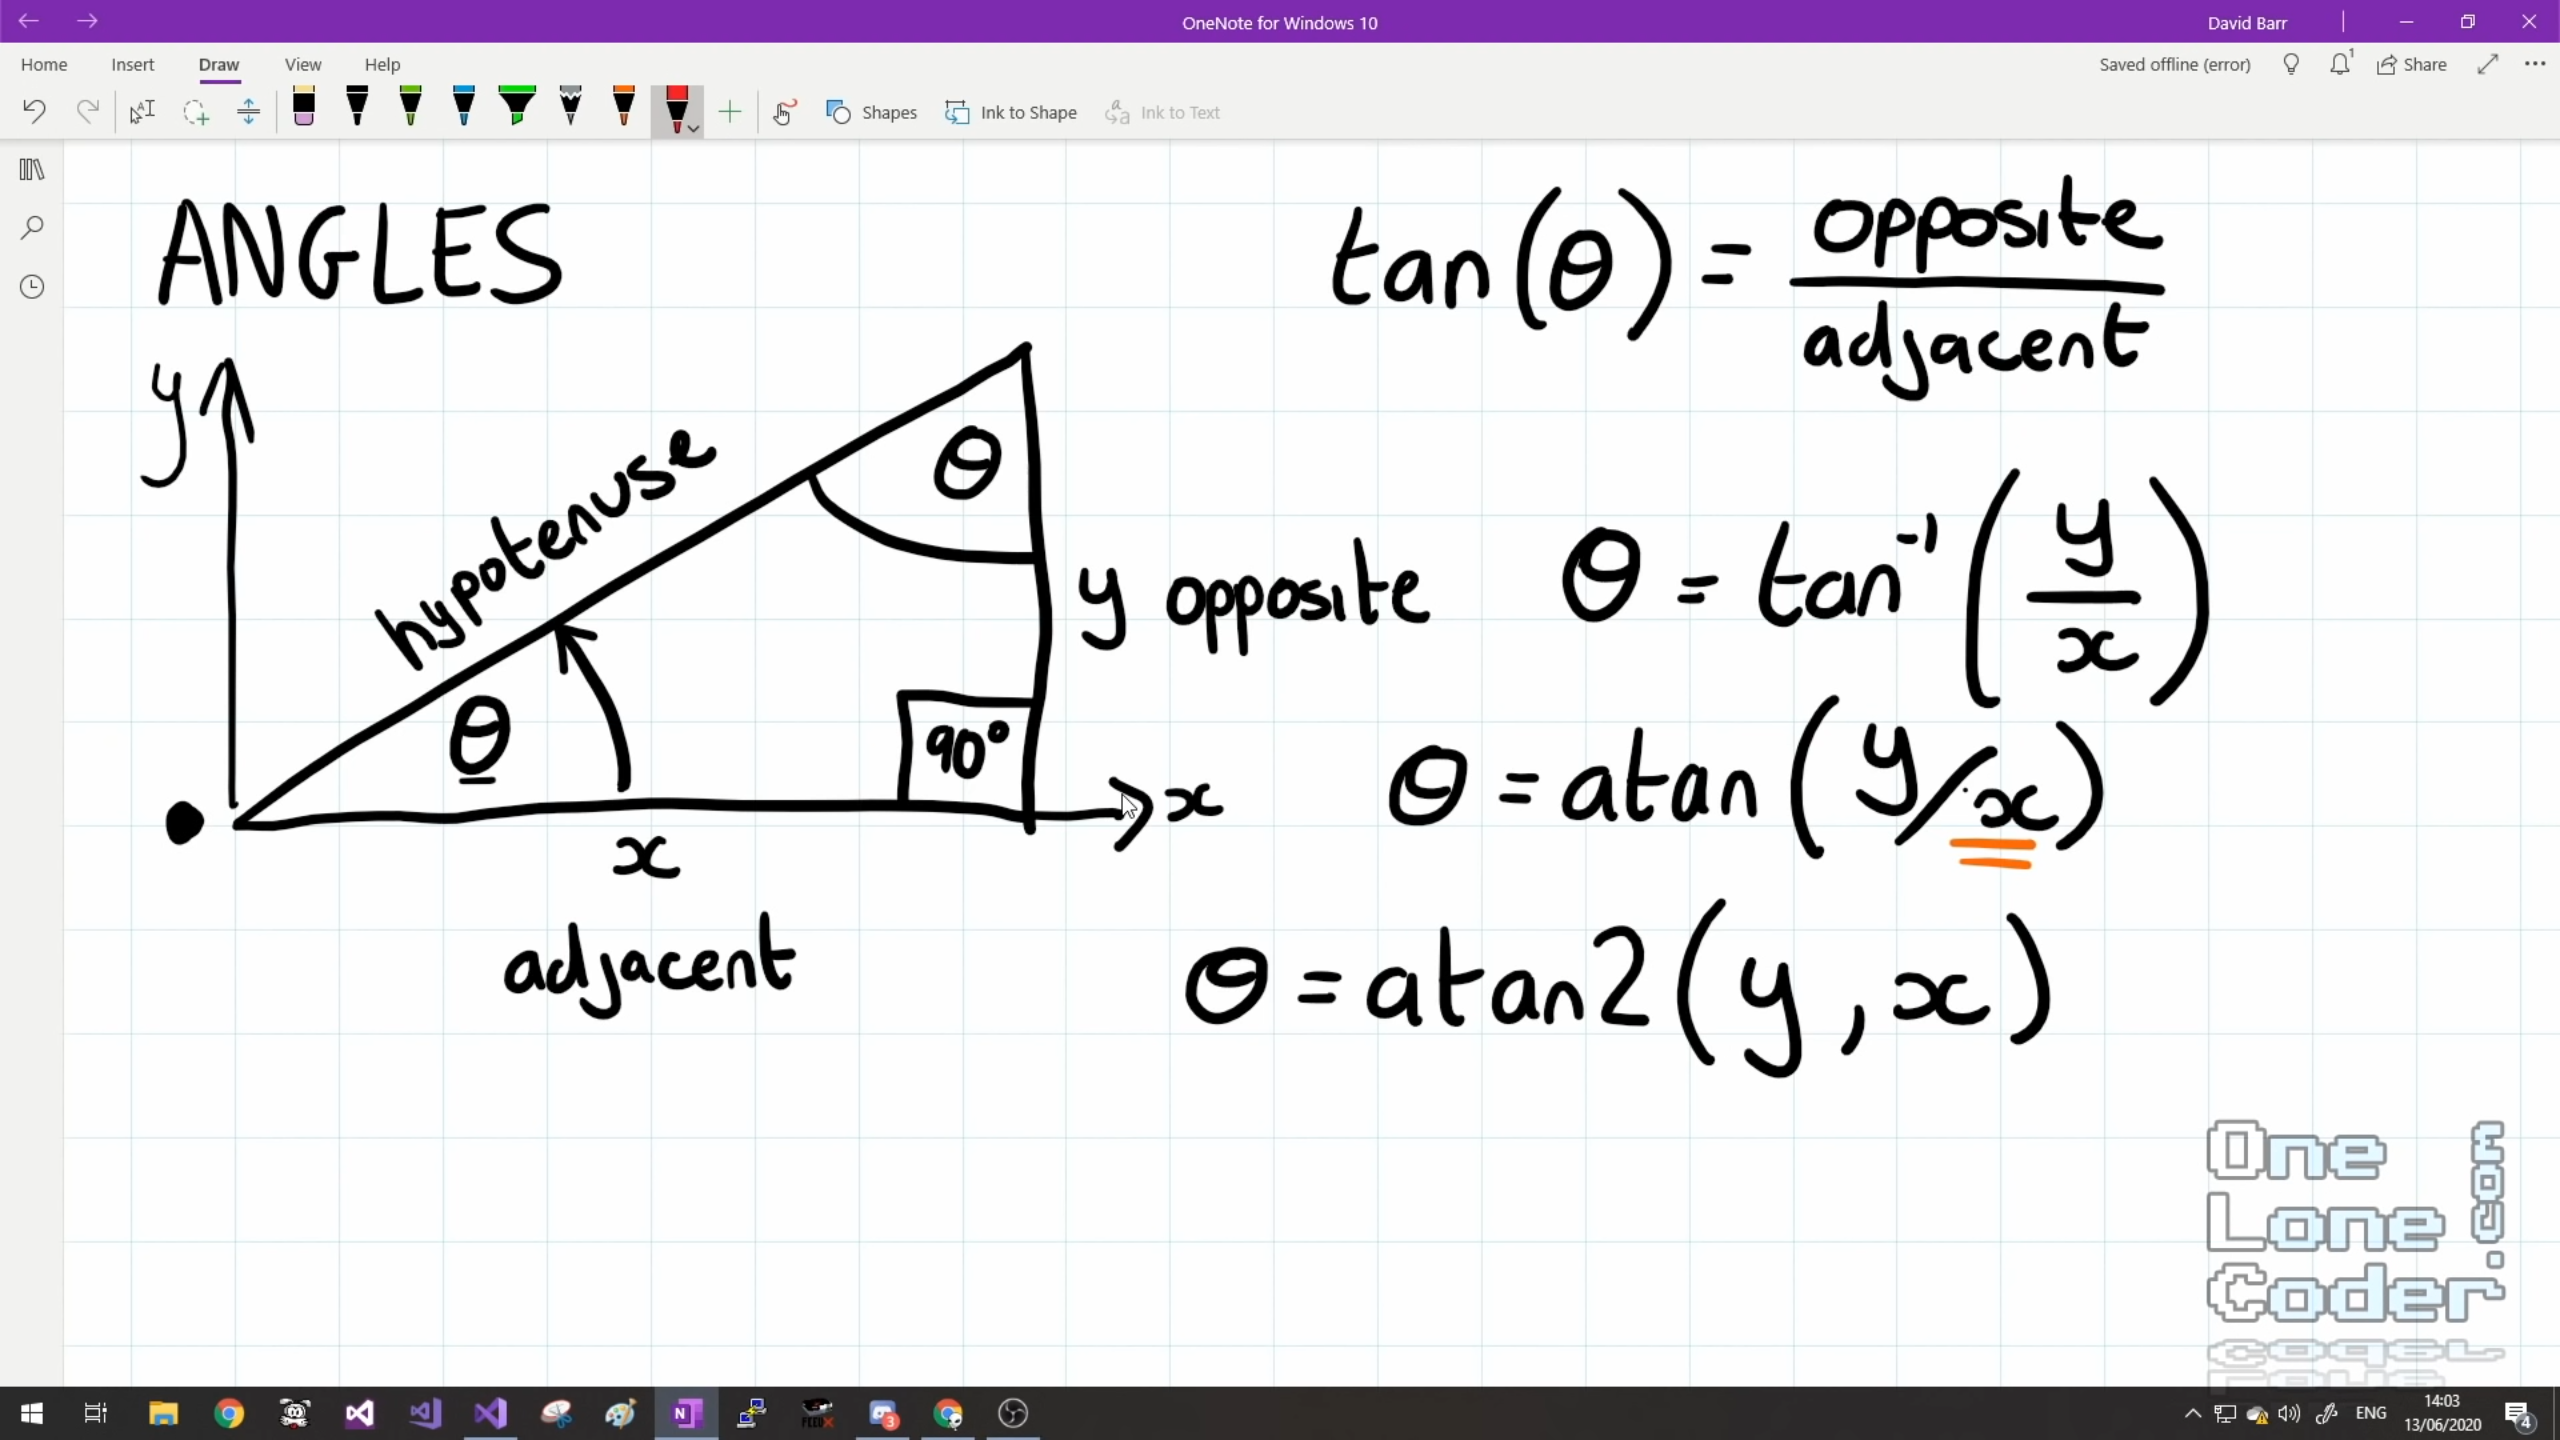 OneNote for Windows 10
David Barr
Home Insert Draw View Help
Saved offline (error)
1
Share
Shapes
Ink to Shape
Ink to Text
ANGLES
tan(θ) = opposite
adjacent
y
hypotenuse
θ
y opposite
θ = tan⁻¹(y
x)
θ
90°
x
θ = atan(y/x)
x
adjacent
θ = atan2(y, x)
One
Lone
Coder
.com
N
3
ENG
14:03
13/06/2020
4